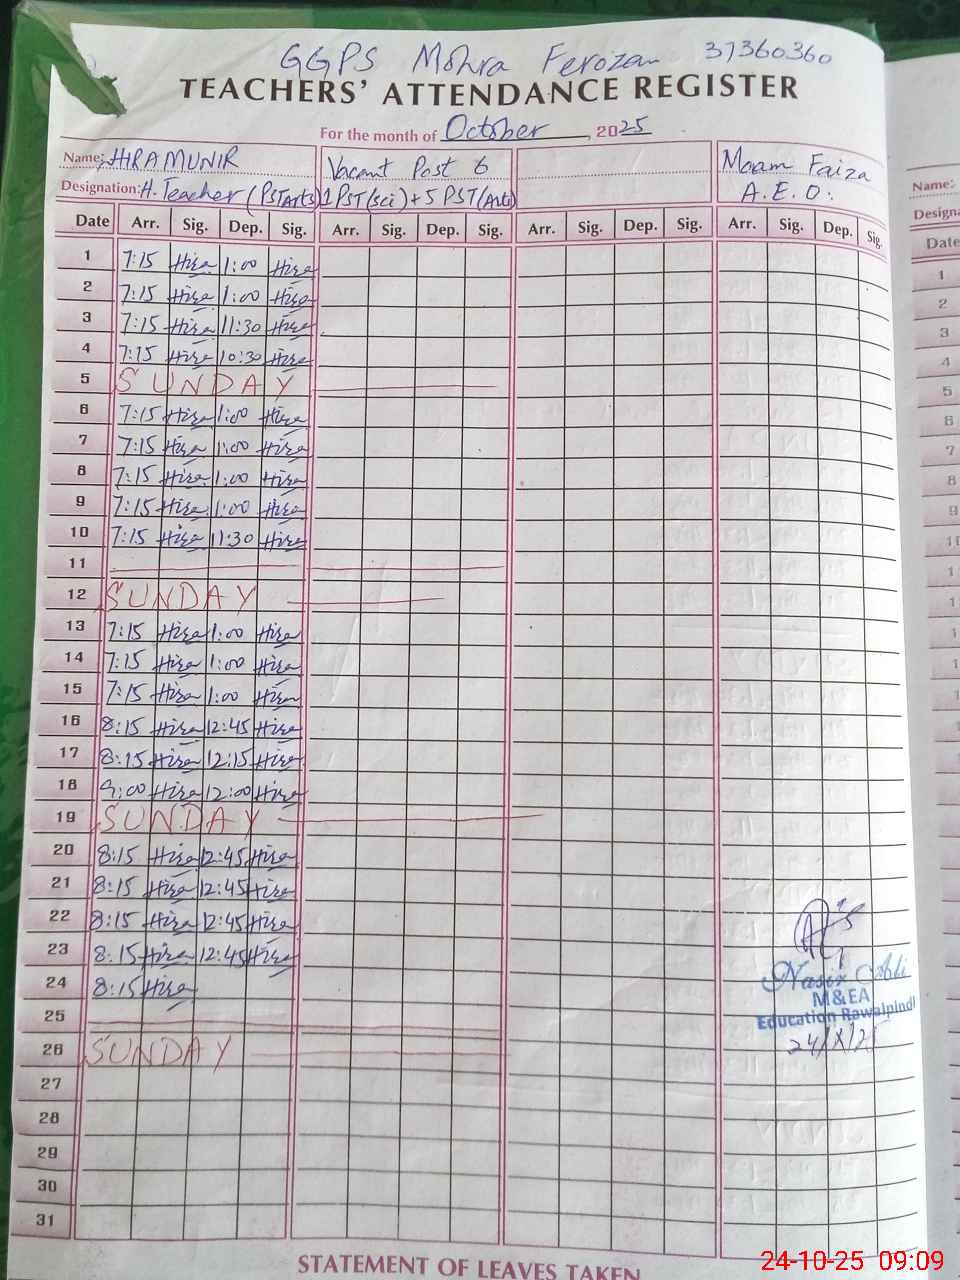 GGPS Mohra Ferozan 37360360
TEACHERS' ATTENDANCE REGISTER
For the month of October, 2025
Name: HIRA MUNIR Vacant Post 6 Maam Faiza
Designation: H. Teacher (PST Arts) 1 PST (sci) + 5 PST (Arts) A.E.O.
Date Arr. Sig. Dep. Sig. Arr. Sig. Dep. Sig. Arr. Sig. Dep. Sig. Arr. Sig. Dep. Sig.
1 7:15 Hira 1:00 Hira
2 7:15 Hira 1:00 Hira
3 7:15 Hira 11:30 Hira
4 7:15 Hira 10:30 Hira
5 SUNDAY
6 7:15 Hira 1:00 Hira
7 7:15 Hira 1:00 Hira
8 7:15 Hira 1:00 Hira
9 7:15 Hira 1:00 Hira
10 7:15 Hira 11:30 Hira
11
12 SUNDAY
13 7:15 Hira 1:00 Hira
14 7:15 Hira 1:00 Hira
15 7:15 Hira 1:00 Hira
16 8:15 Hira 12:45 Hira
17 8:15 Hira 12:15 Hira
18 9:00 Hira 12:00 Hira
19 SUNDAY
20 8:15 Hira 12:45 Hira
21 8:15 Hira 12:45 Hira
22 8:15 Hira 12:45 Hira
23 8:15 Hira 12:45 Hira
24 8:15 Hira
Nasir Ali
M&EA
Education Rawalpindi
24/X/25
25
26 SUNDAY
27
28
29
30
31
STATEMENT OF LEAVES TAKEN
Name:
Designa
Date
1
2
3
4
5
6
7
8
9
10
24-10-25 09:09